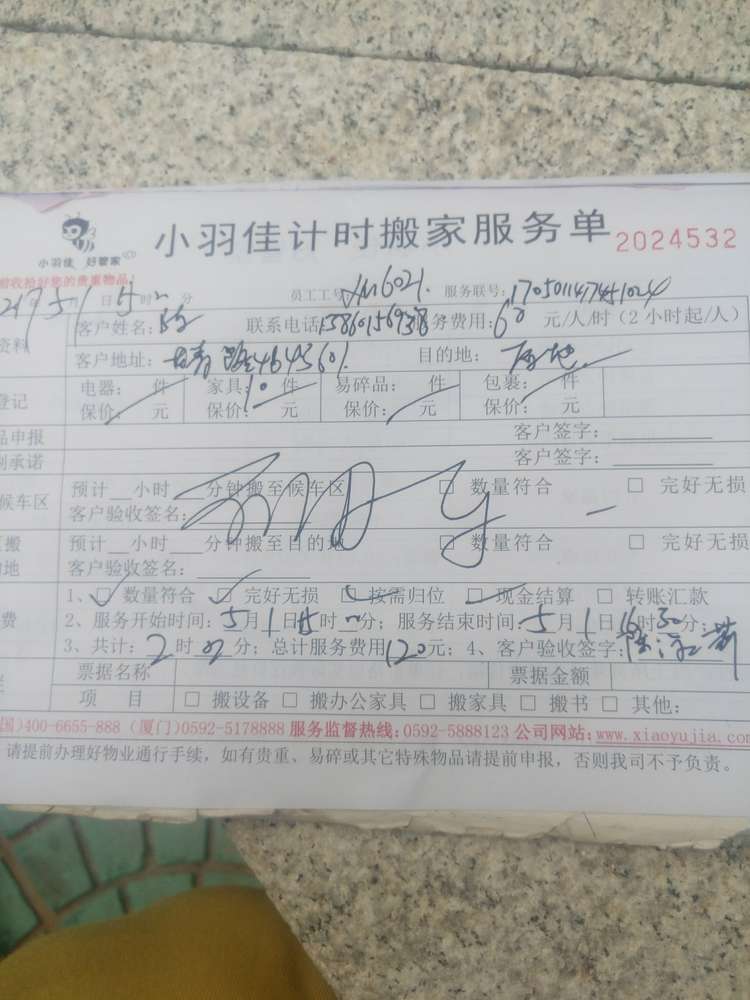 小羽佳计时搬家服务单 2024532
小羽佳 好管家
前收拾好您的贵重物品!
5月1日 时 分 员工工号: XM6021. 服务联号: 170501147451024
资料 客户姓名: 联系电话 服务费用: 60 元/人/时(2小时起/人)
客户地址: 目的地: 原地
登记 电器: 件 家具: 10 件 易碎品: 件 包裹: 件
保价: 元 保价: 元 保价: 元 保价: 元
品申报 客户签字:
制承诺 客户签字:
候车区 预计__小时__分钟搬至候车区 □ 数量符合 □ 完好无损
客户验收签名:
搬 预计__小时__分钟搬至目的地 □ 数量符合 □ 完好无损
地 客户验收签名:
1、☑ 数量符合 ☑ 完好无损 ☑ 按需归位 ☑ 现金结算 □ 转账汇款
费 2、服务开始时间: 5月1日 时 分; 服务结束时间: 5月1日16时30分;
3、共计: 2时 分; 总计服务费用120元; 4、客户验收签字:
票据名称 票据金额
项 目 □ 搬设备 □ 搬办公家具 □ 搬家具 □ 搬书 □ 其他:
国)400-6655-888 (厦门)0592-5178888 服务监督热线:0592-5888123 公司网站: www.xiaoyujia.com
请提前办理好物业通行手续, 如有贵重、易碎或其它特殊物品请提前申报, 否则我司不予负责。